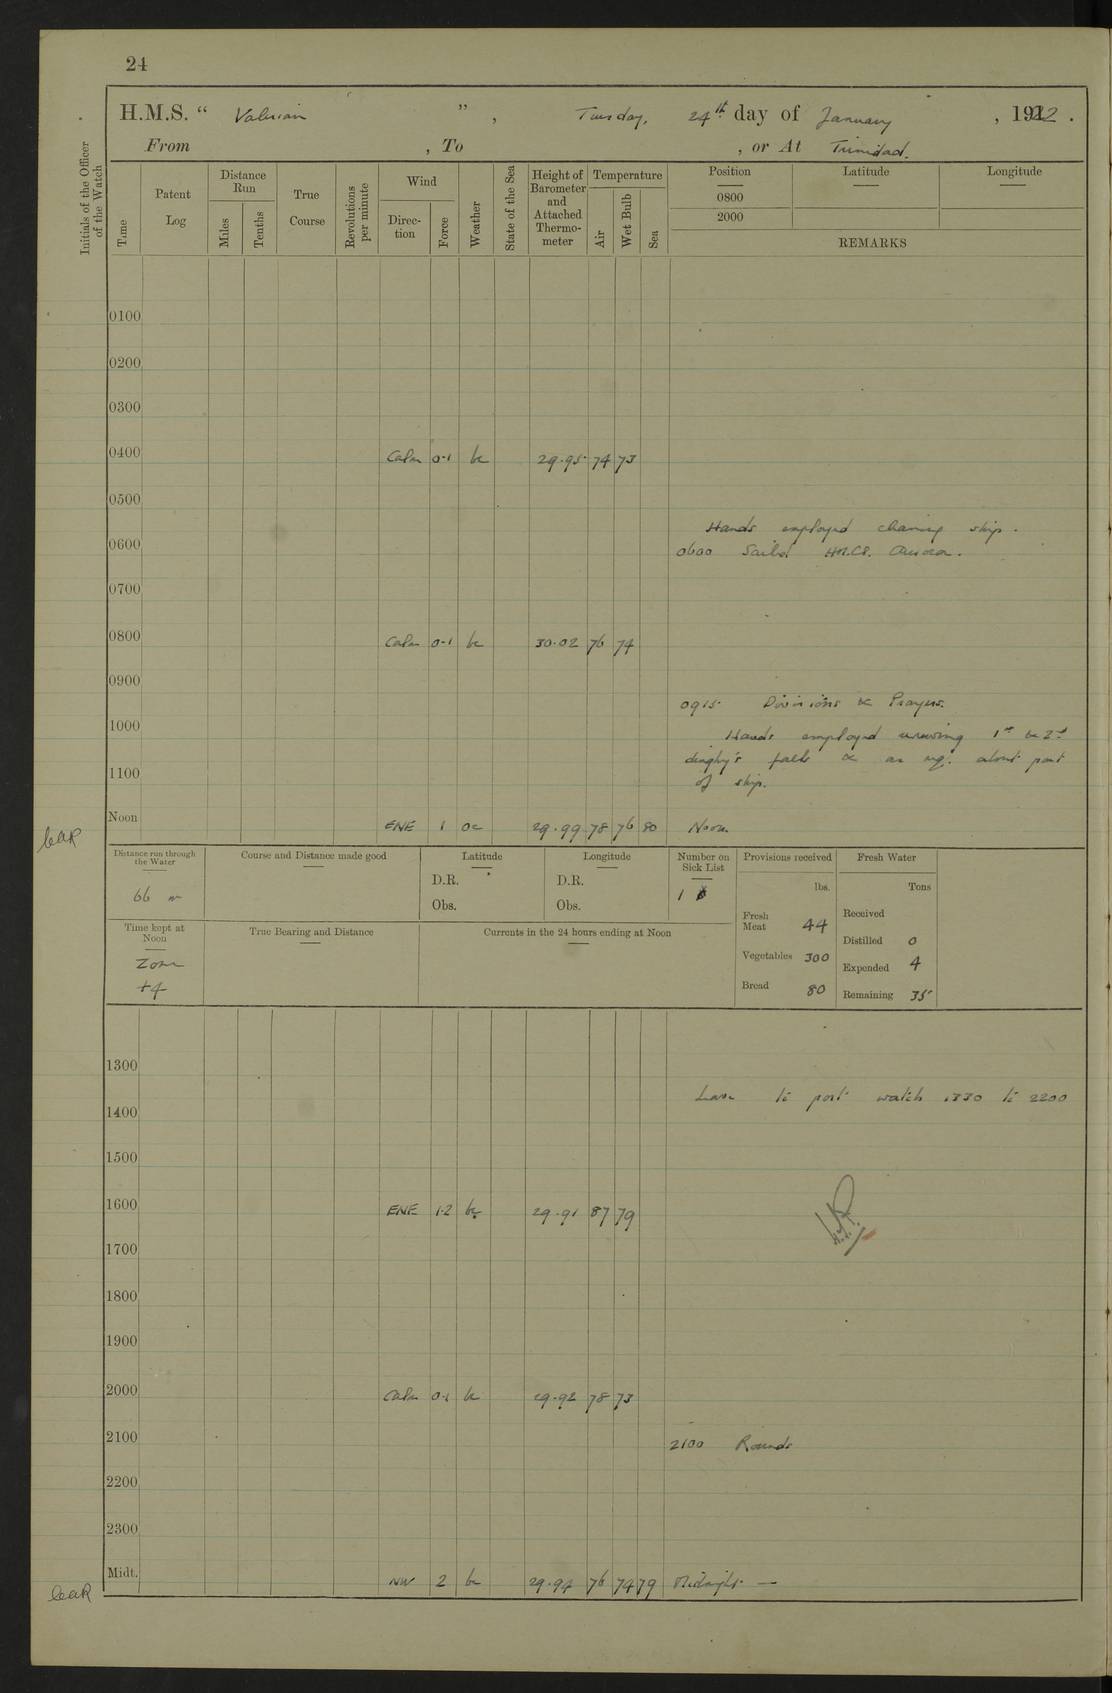 24
H.M.S. " Valerian ", Tuesday, 24th day of January, 1922.
From , To , or At Trinidad.
Initials of the Officer of the Watch
Time
Patent Log
Distance Run
Miles
Tenths
True Course
Revolutions per minute
Wind
Direction
Force
Weather
State of the Sea
Height of Barometer and Attached Thermometer
Temperature
Air
Wet Bulb
Sea
Position Latitude Longitude
0800
2000
REMARKS
0100
0200
0300
0400 Calm 0-1 bc 29.95 74 73
0500
Hands employed cleaning ship.
0600 0600 Sailed H.M.C.S. Aurora.
0700
0800 Calm 0-1 bc 30.02 76 74
0900
0915 Divisions & Prayers.
1000 Hands employed 1st & 2nd
dinghy's falls & as req. about part
1100 of ship.
Noon ENE 1 oc 29.99 78 76 80 Noon
Distance run through the Water
66 m
Course and Distance made good
Latitude
D.R.
Obs.
Longitude
D.R.
Obs.
Number on Sick List
1
Provisions received
lbs.
Fresh Meat 44
Vegetables 300
Bread 80
Fresh Water
Tons
Received
Distilled 0
Expended 4
Remaining 35
Time kept at Noon
Zone
+4
True Bearing and Distance
Currents in the 24 hours ending at Noon
1300
Leave to port watch 1330 to 2200
1400
1500
1600 ENE 1.2 bc 29.91 87 79
1700
1800
1900
2000 Calm 0-1 bc 29.92 78 73
2100 2100 Rounds
2200
2300
Midt. NW 2 bc 29.94 76 74 79 Midnight —